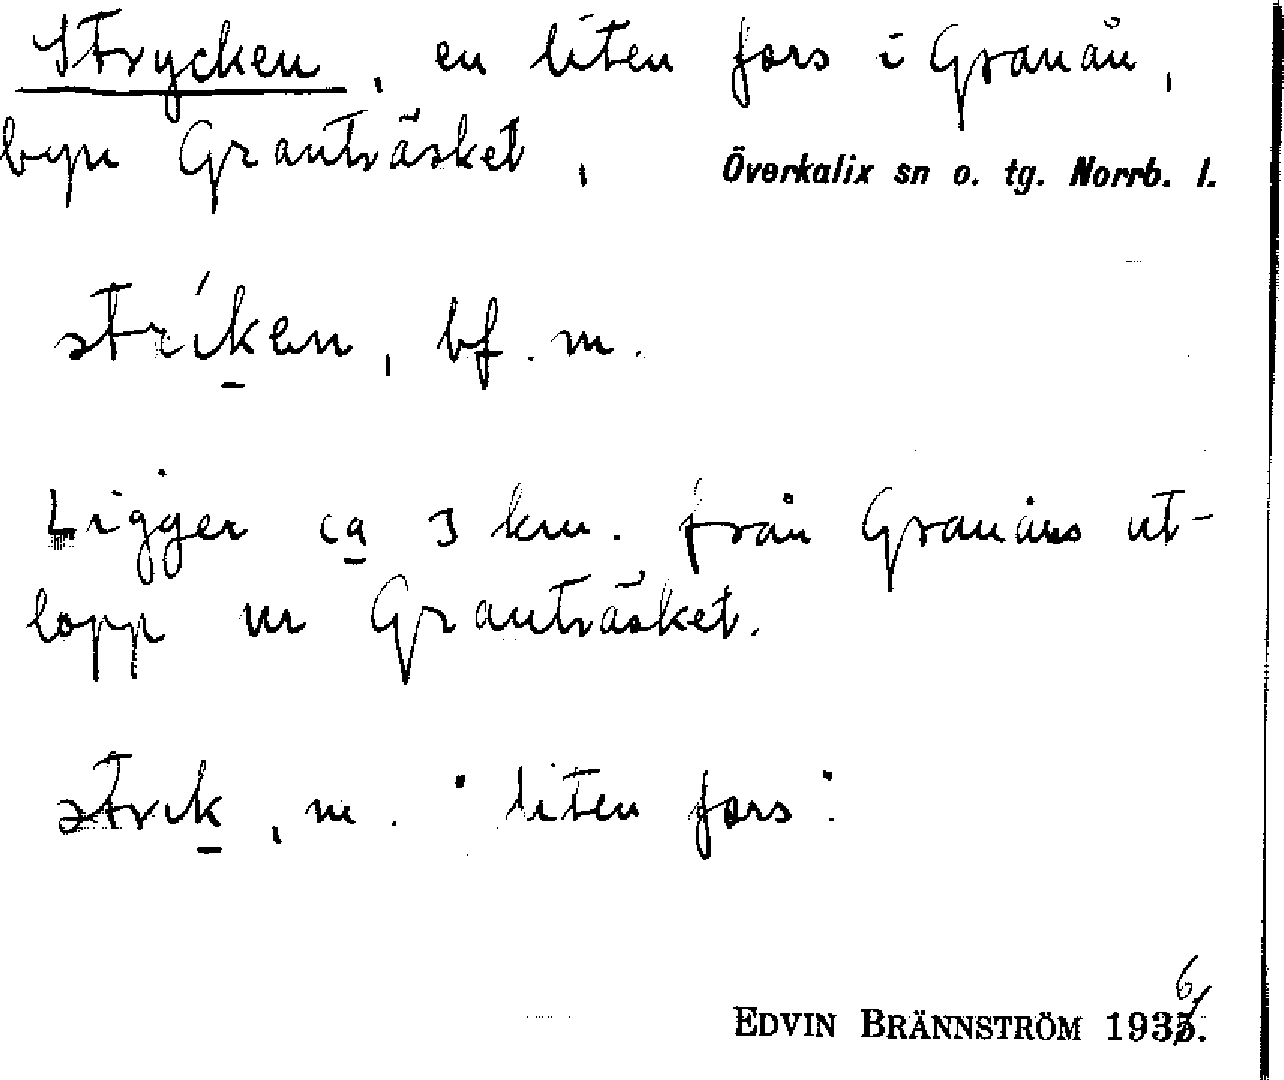 Strycken, en liten fors i Granån,
byn Granträsket, Överkalix sn o. tg. Norrb. l.
stríken, bf. m.
Ligger ca 3 km. från Granåns ut-
lopp ur Granträsket.
strik, m. "liten fors".
EDVIN BRÄNNSTRÖM 1936.